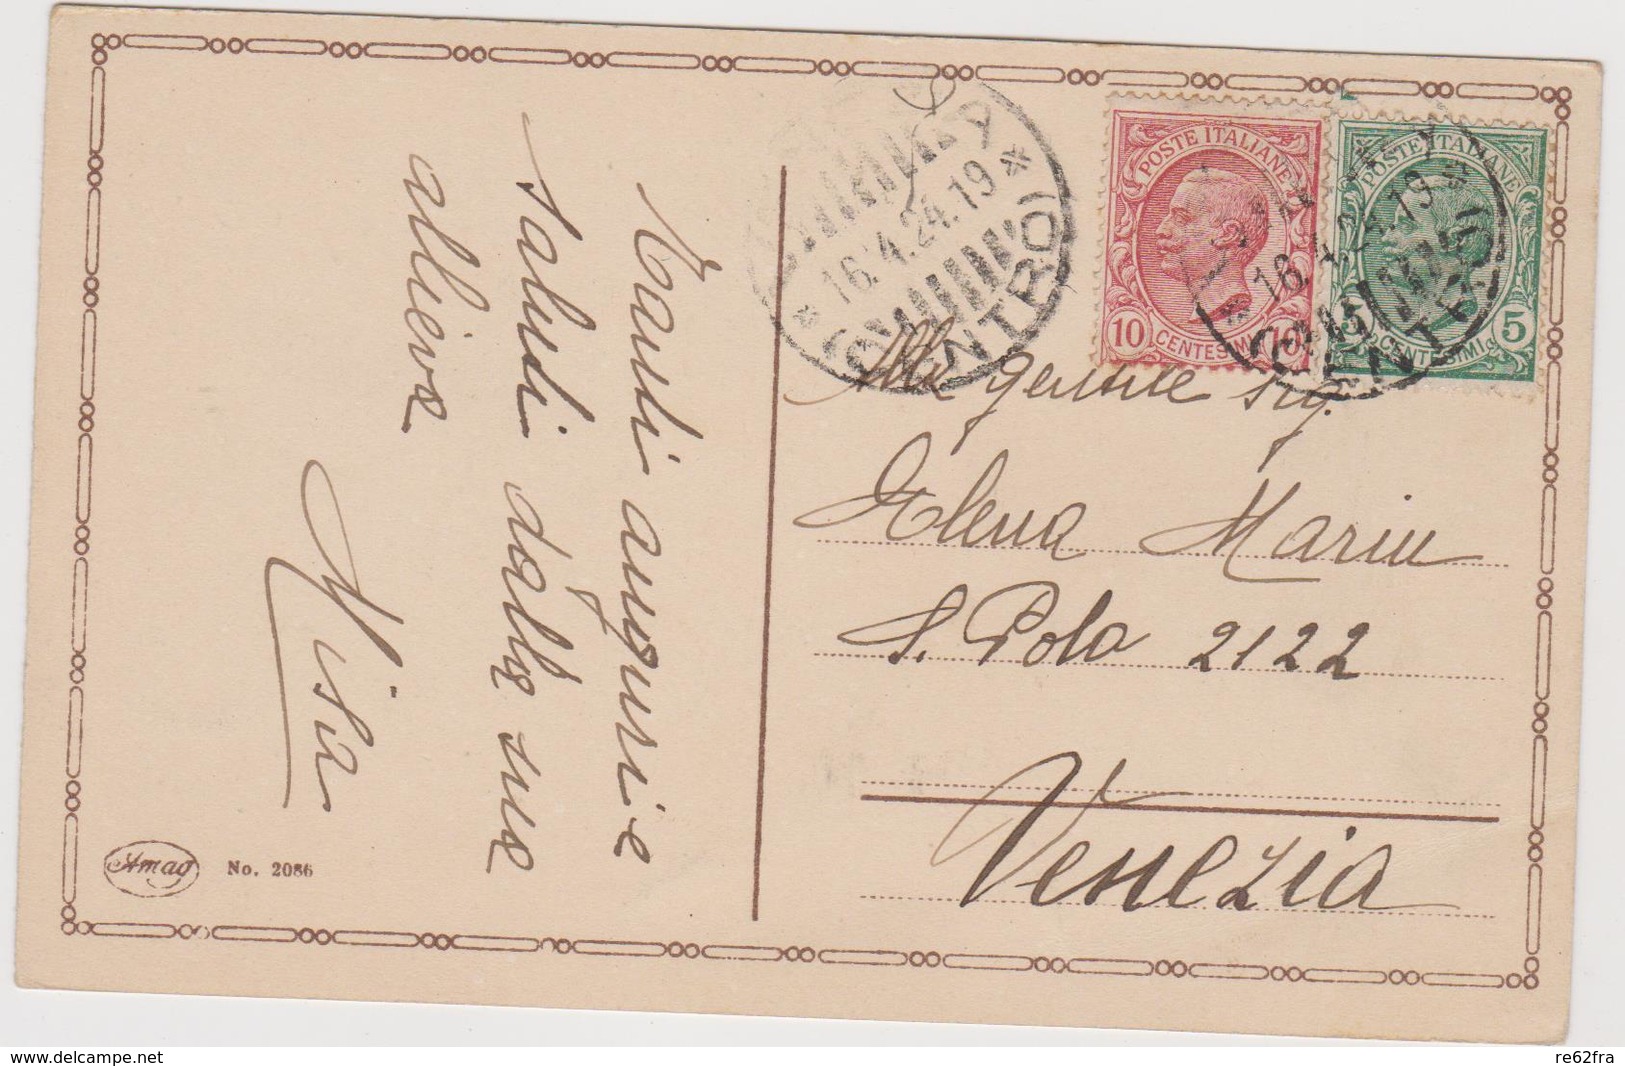 Tanti auguri e
saluti dalla sua
allieva
Alla gentile sig.
Elena Marin
S. Polo 2122
Venezia
POSTE ITALIANE
10 CENTESIMI 10
POSTE ITALIANE
5 CENTESIMI 5
* 16.4.24.19 *
CENTRO)
* 16.4.24.19 *
CENTRO)
Amag No. 2086
delcampe.net
re62fra